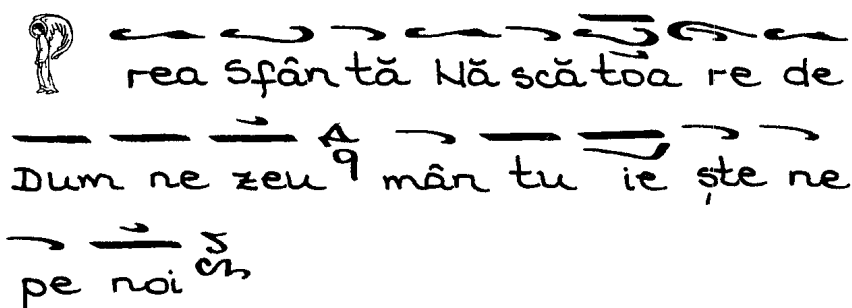 Prea Sfân tă Nă scă toa re de
Dum ne zeu mân tu ie ște ne
pe noi